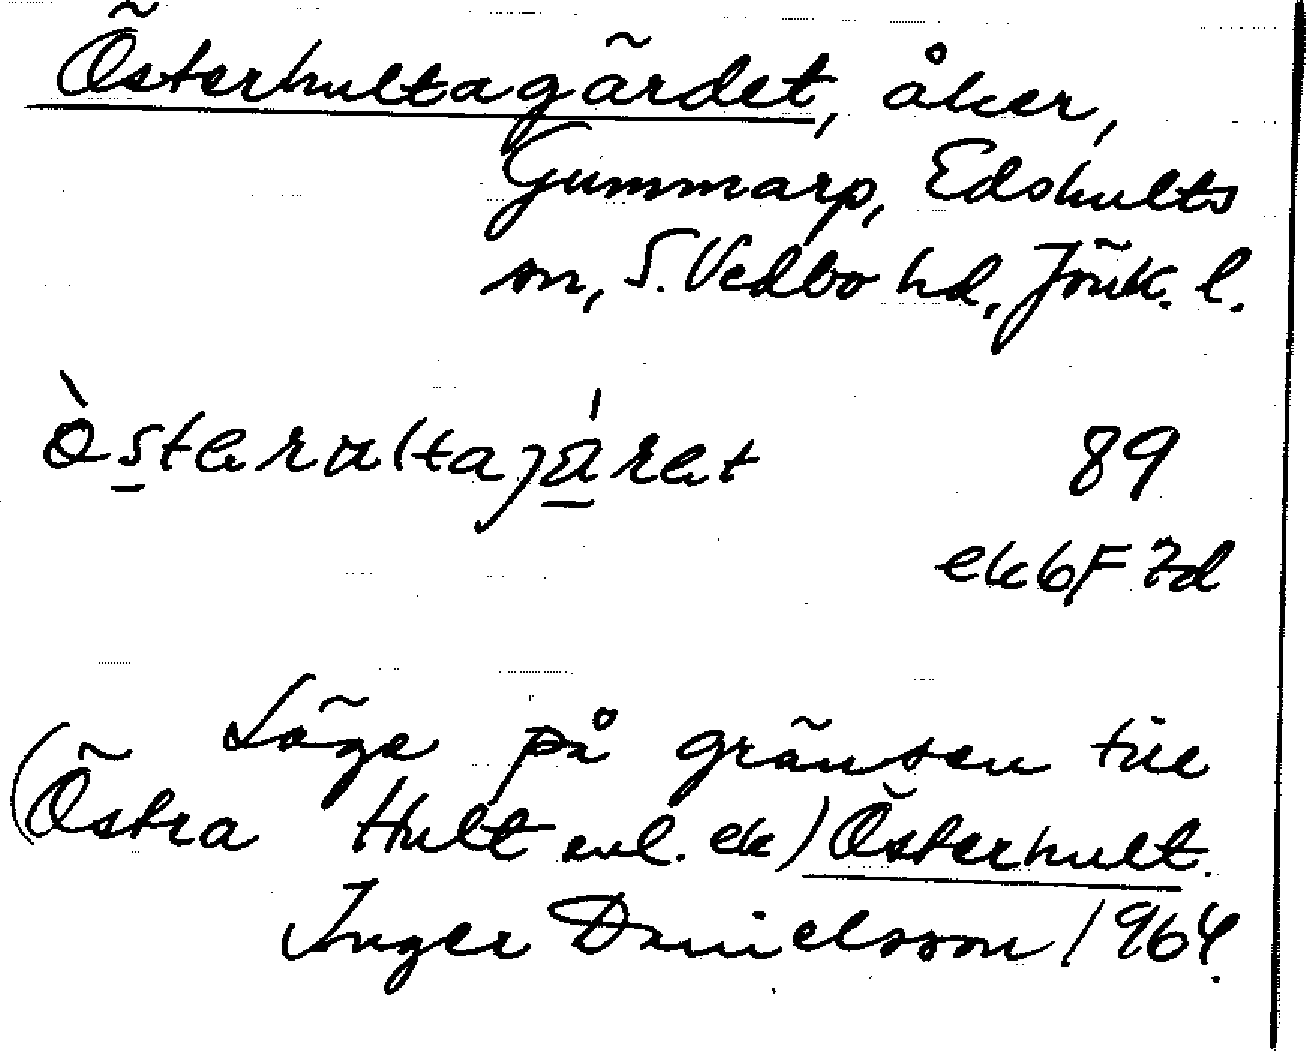 Österhultagärdet, åker,
Gummarp, Edshults
sn, S. Vedbo hd, Jönk. l.
ò̈steraltajá̈ret 89
ek 6F 7d
Läge på gränsen till
(Östra Hult enl. ek) Österhult.
Inger Danielsson 1964.